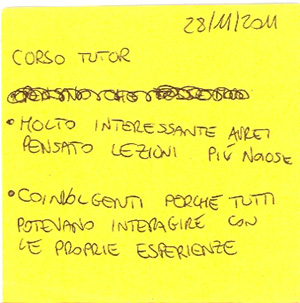 28/11/2011
CORSO TUTOR
• MOLTO INTERESSANTE AVREI
PENSATO LEZIONI PIÚ NOIOSE
• COINVOLGENTI PERCHÉ TUTTI
POTEVANO INTERAGIRE CON
LE PROPRIE ESPERIENZE